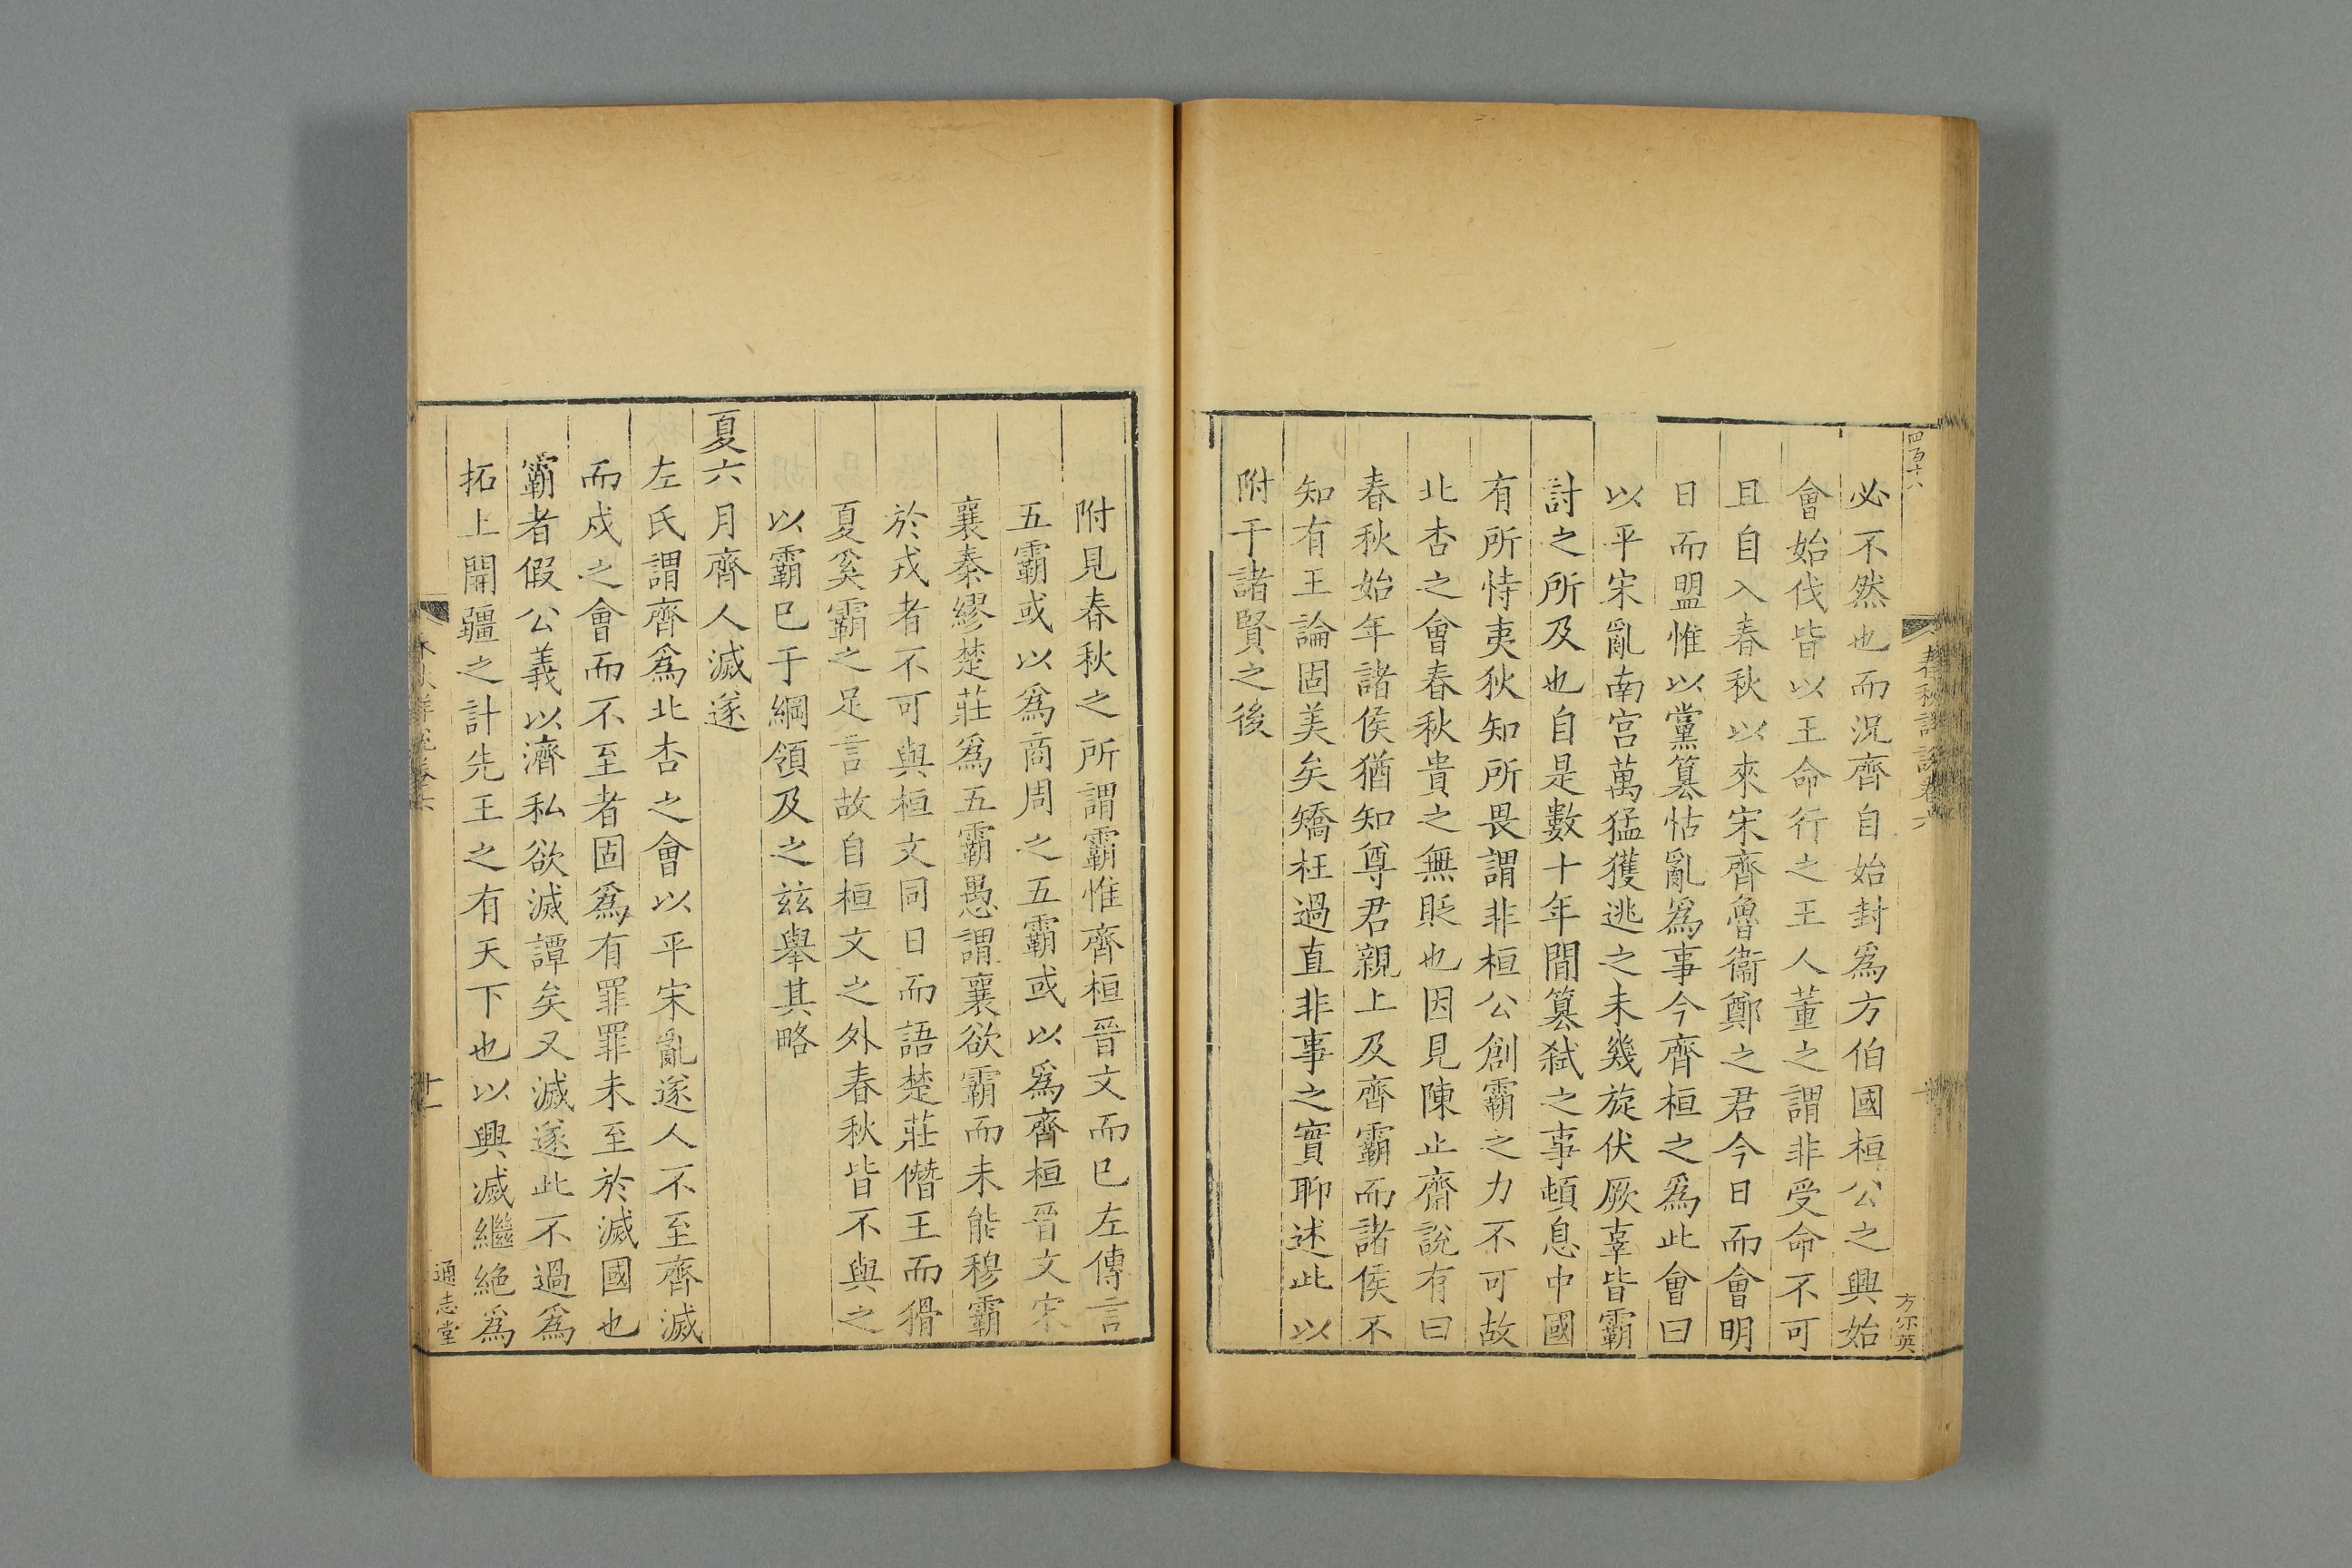 四百十六
春秋詳說卷六
方宗英
必不然也而況齊自始封爲方伯國桓公之興始
會始伐皆以王命行之王人董之謂非受命不可
且自入春秋以來宋齊魯衞鄭之君今日而會明
日而盟惟以黨簒怙亂爲事今齊桓之爲此會曰
以平宋亂南宫萬猛獲逃之未幾旋伏厥辜皆霸
討之所及也自是數十年間簒弑之事頓息中國
有所恃夷狄知所畏謂非桓公創霸之力不可故
北杏之會春秋貴之無貶也因見陳止齋說有曰
春秋始年諸侯猶知尊君親上及齊霸而諸侯不
知有王論固美矣矯枉過直非事之實聊述此以
附于諸賢之後
附見春秋之所謂霸惟齊桓晉文而已左傳言
五霸或以爲商周之五霸或以爲齊桓晉文宋
襄秦繆楚莊爲五霸愚謂襄欲霸而未能穆霸
於戎者不可與桓文同日而語楚莊僭王而猾
夏奚霸之足言故自桓文之外春秋皆不與之
以霸已于綱領及之兹舉其略
夏六月齊人滅遂
左氏謂齊爲北杏之會以平宋亂遂人不至齊滅
而戍之會而不至者固爲有罪罪未至於滅國也
霸者假公義以濟私欲滅譚矣又滅遂此不過爲
拓上開疆之計先王之有天下也以興滅繼絶爲
十一
通志堂